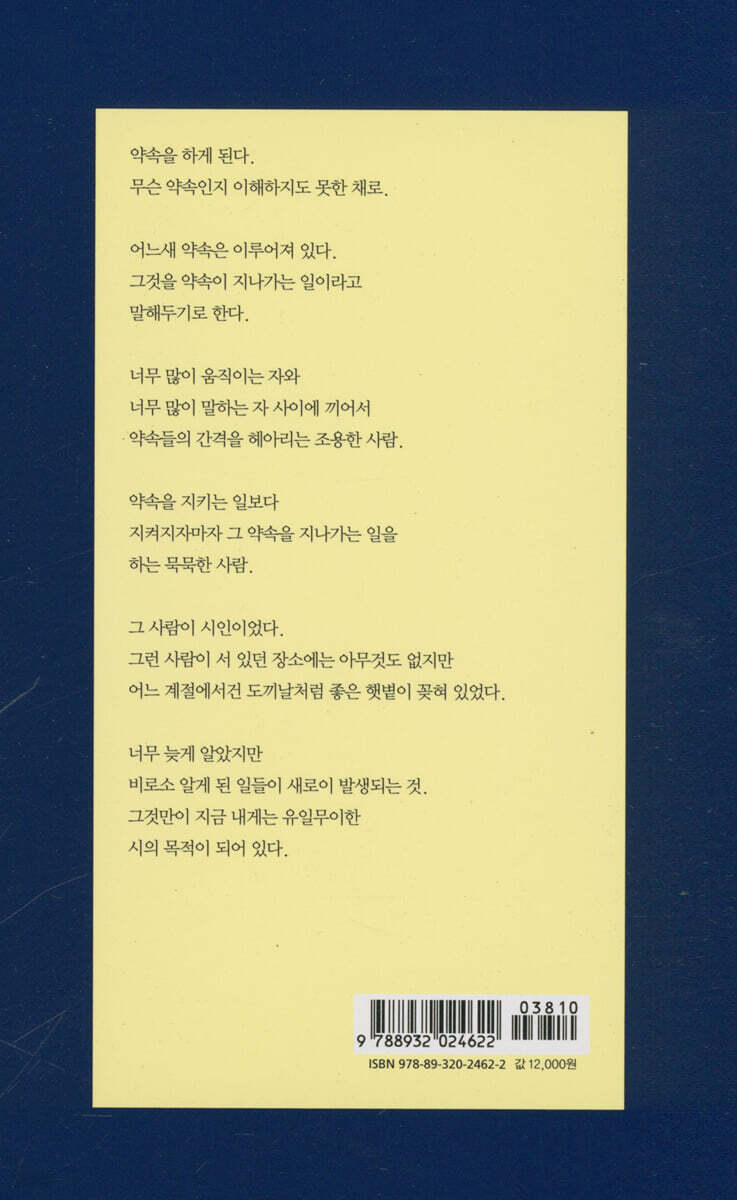 약속을 하게 된다.
무슨 약속인지 이해하지도 못한 채로.
어느새 약속은 이루어져 있다.
그것을 약속이 지나가는 일이라고
말해두기로 한다.
너무 많이 움직이는 자와
너무 많이 말하는 자 사이에 끼어서
약속들의 간격을 헤아리는 조용한 사람.
약속을 지키는 일보다
지켜지자마자 그 약속을 지나가는 일을
하는 묵묵한 사람.
그 사람이 시인이었다.
그런 사람이 서 있던 장소에는 아무것도 없지만
어느 계절에서건 도끼날처럼 좋은 햇볕이 꽂혀 있었다.
너무 늦게 알았지만
비로소 알게 된 일들이 새로이 발생되는 것.
그것만이 지금 내게는 유일무이한
시의 목적이 되어 있다.
03810
9 788932 024622
ISBN 978-89-320-2462-2 값 12,000원